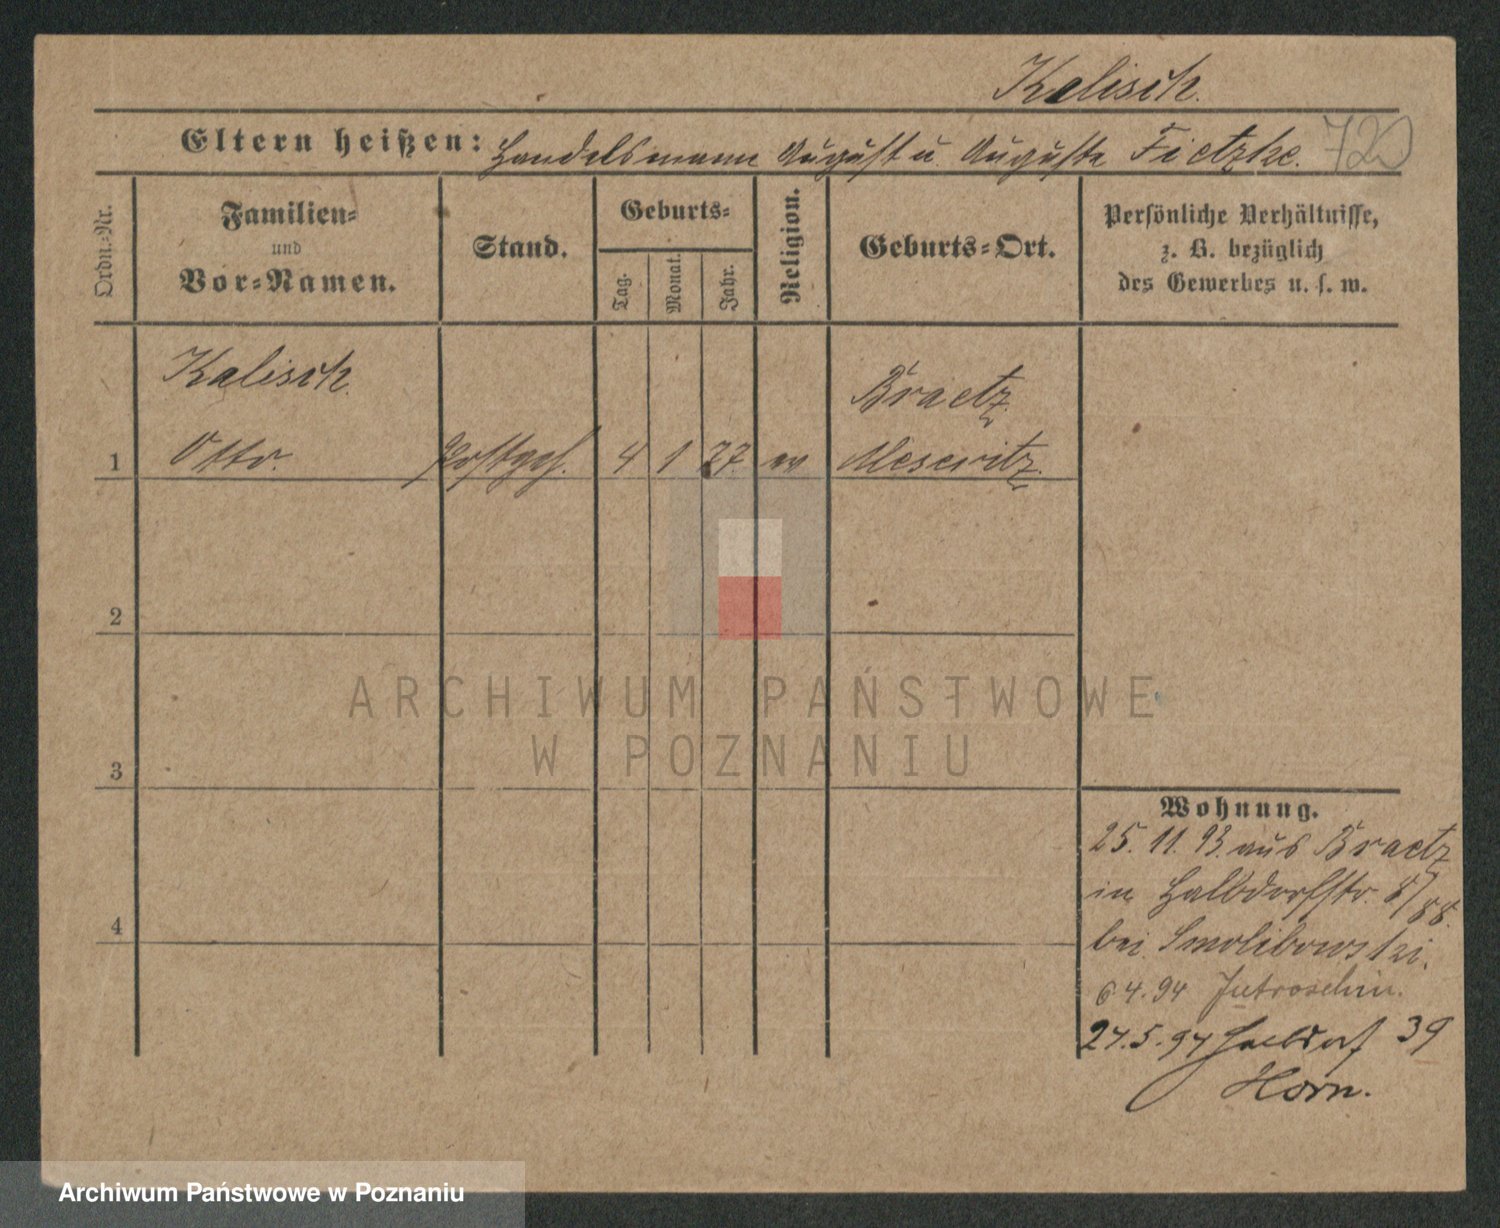 Kalisch.
Eltern heißen: Handelsmann August u. Auguste Fietzke. 720
Ordn.-Nr.
Familien-
und
Vor-Namen.
Stand.
Geburts-
Tag.
Monat.
Jahr.
Religion.
Geburts-Ort.
Persönliche Verhältnisse,
z. B. bezüglich
des Gewerbes u. s. w.
Kalisch.
Braetz
1 Otto. Postgeh. 4 1 77. ev Meseritz.
2
3
4
Wohnung.
25. 11. 93. aus Braetz
in Halbdorfstr.
bei Smolibowski.
6.4.94 Jutroschin.
27.5.94 Halbdorf 39
Horn.
ARCHIWUM PAŃSTWOWE
W POZNANIU
Archiwum Państwowe w Poznaniu